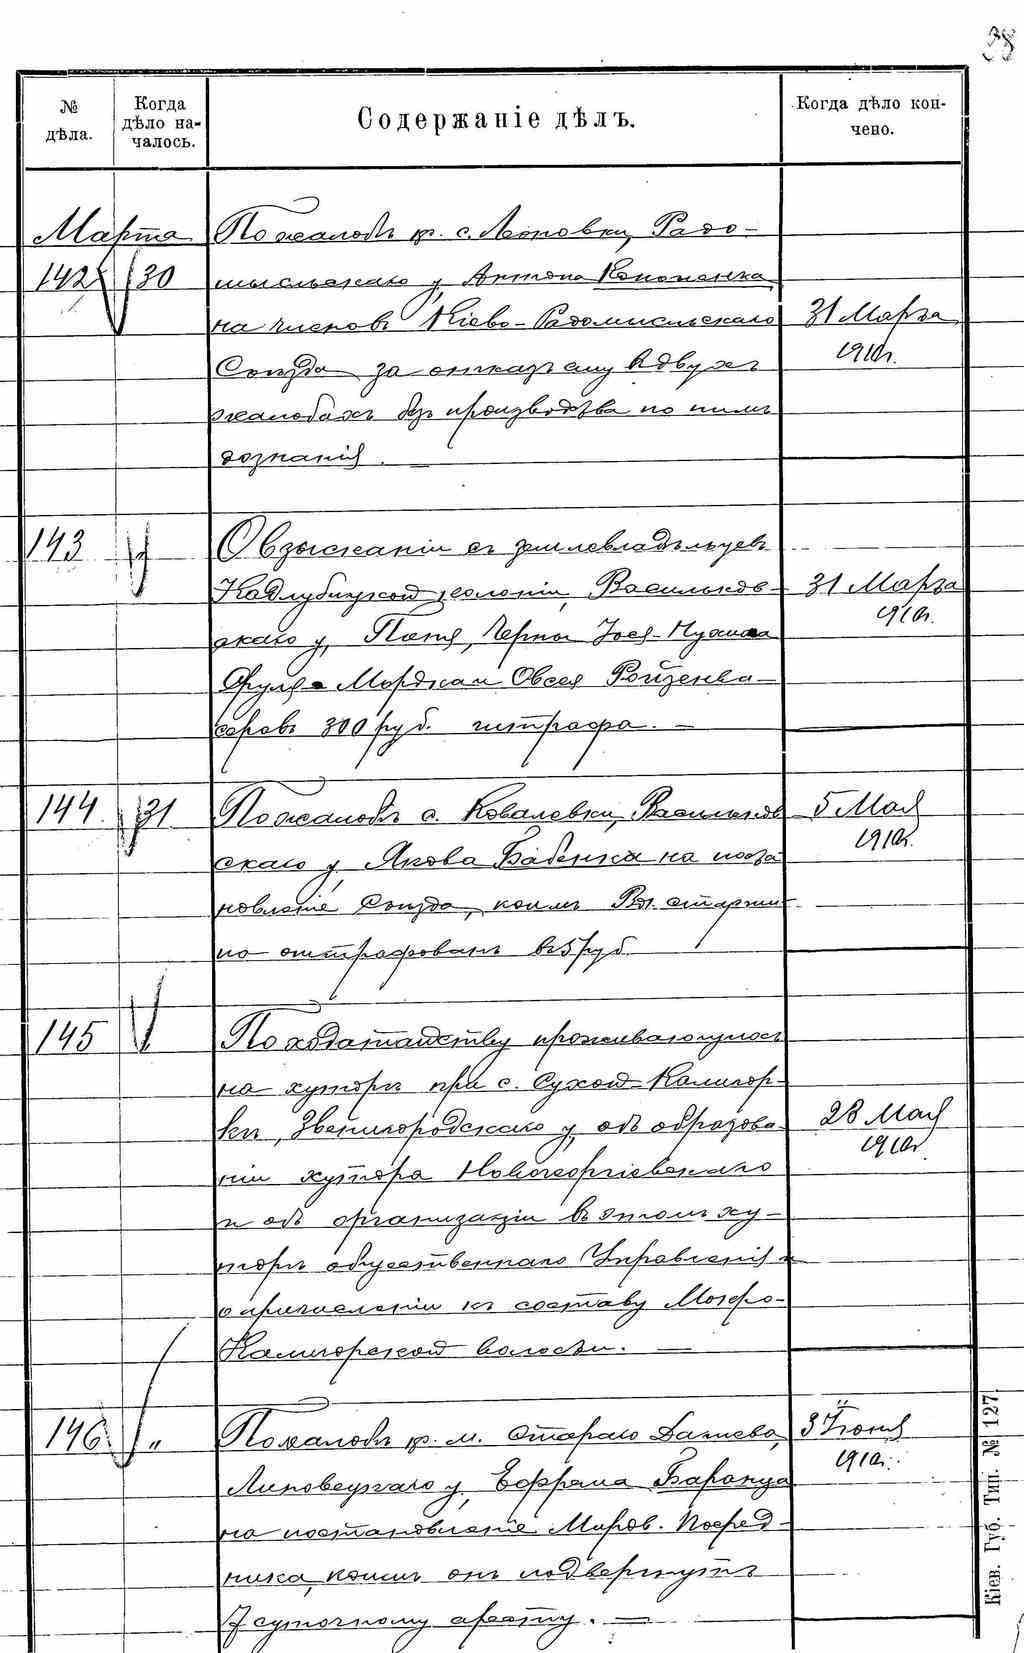 38
№ дѣла.
Когда дѣло на-
чалось.
Содержаніе дѣлъ.
Когда дѣло кон-
чено.
Марта
142 30
По жалобѣ кр. с. Леоновки, Радо-
мысльскаго у. Антона Кононенка
на членовъ Кіево-Радомысльскаго
Съѣзда за отказъ ему въ двухъ
жалобахъ безъ производства по нимъ
дознанія. —
31 Марта
1910г.
143 "
О взысканіи съ землевладѣльцевъ
Кадлубицкой колоніи, Васильков-
скаго у,
Овсея Ройзенва-
серовъ 300 руб. штрафа. —
31 Марта
1910г.
144. 31
По жалобѣ с. Ковалевки, Васильков
скаго у. Якова Бабенка на поста
новленіе Съѣзда, коимъ Вол. старши-
но оштрафованъ въ 5 руб.
5 Мая
1910г.
145
По ходатайству проживающихъ
на хуторѣ при с. Сухой-Калигор-
кѣ, Звенигородскаго у, объ образова-
ніи хутора Новогеоргіевскаго
и объ организаціи въ этомъ ху-
торѣ общественнаго Управленія и
о причисленіи къ составу Мокро-
Калигорской волости. —
28 Мая
1910г.
146 "
По жалобѣ кр. м. Стараго Дашева,
Липовецкаго у, Ефрема Баранца
на постановленіе Миров. Посред-
ника, коимъ онъ подвергнутъ
7 суточному аресту. —
3 Іюня
1910г.
Кіев. Губ. Тип. № 127.